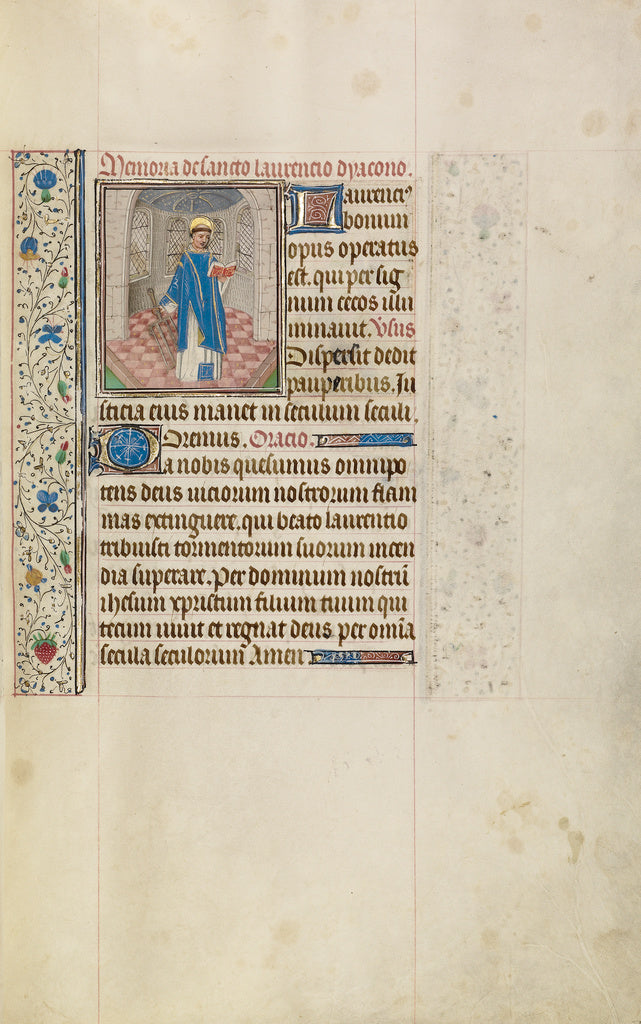 Memoria de sancto laurencio dyacono.
Laurenciꝰ
bonum
opus operatus
est. qui per sig
num cecos illu
minauit. Vsus
Dispersit dedit
pauperibus. Iu
sticia eius manet in seculum seculi.
Oremus. Oracio.
Da nobis quesumus omnipo
tens deus uiciorum nostrorum flam
mas extinguere. qui beato laurentio
tribuisti tormentorum suorum incen
dia superare. Per dominum nostrū
ihesum xpristum filium tuum qui
tecum uiuit et regnat deus per omīa
secula seculorum Amen